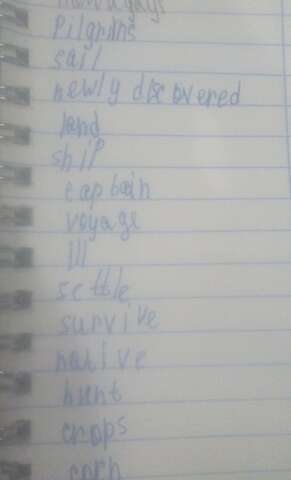 Pilgrims
sail
newly discovered
land
ship
captain
voyage
ill
settle
survive
native
hunt
crops
corn